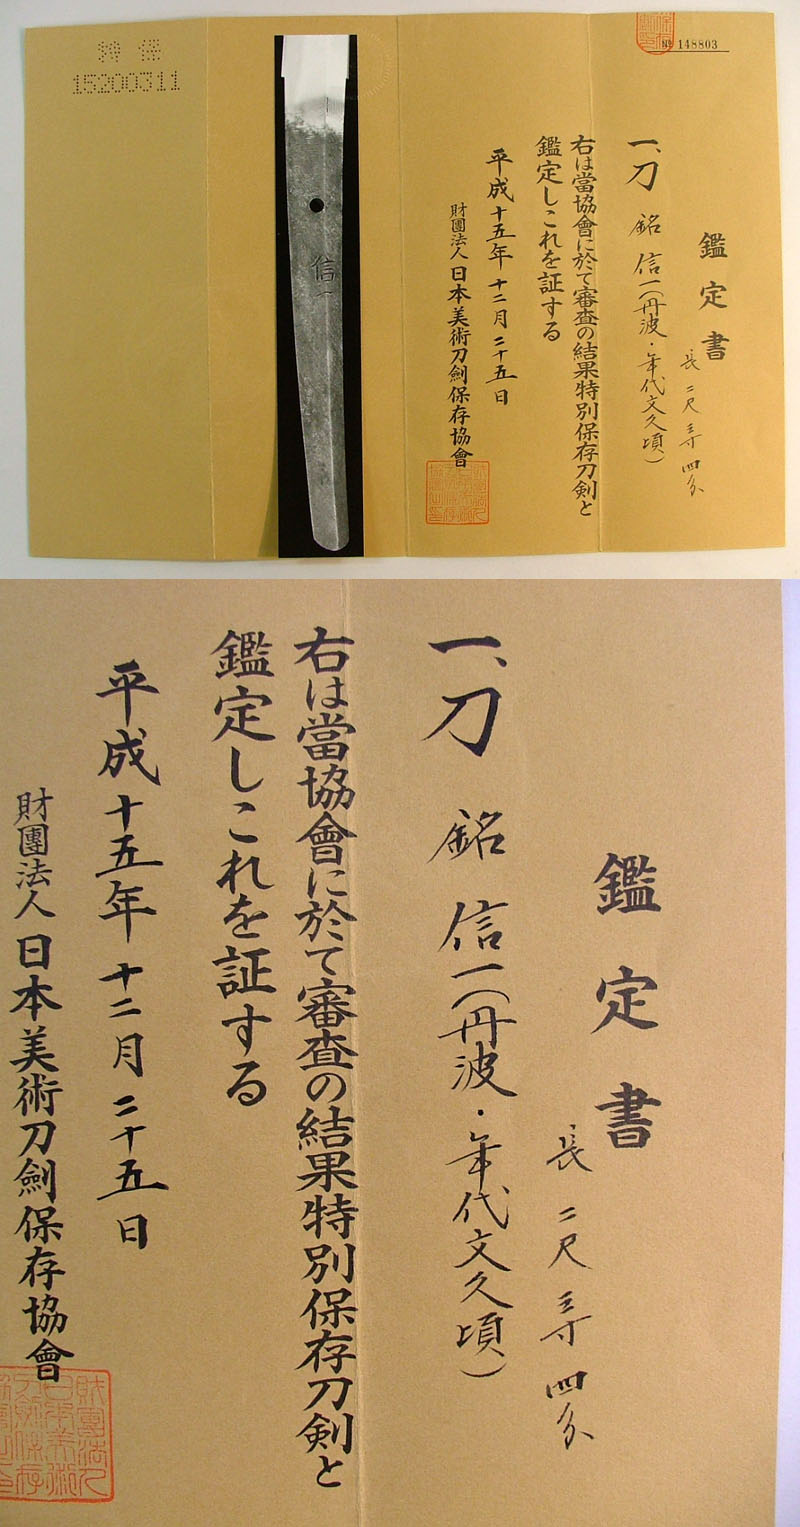 特保
15200311
信一
№ 148803
鑑定書
長二尺三寸四分
一、刀 銘 信一(丹波・年代文久頃)
右は當協會に於て審査の結果特別保存刀剣と
鑑定しこれを証する
平成十五年十二月二十五日
財團法人日本美術刀劍保存協會
鑑定書
長二尺三寸四分
一、刀 銘 信一(丹波・年代文久頃)
右は當協會に於て審査の結果特別保存刀剣と
鑑定しこれを証する
平成十五年十二月二十五日
財團法人日本美術刀劍保存協會